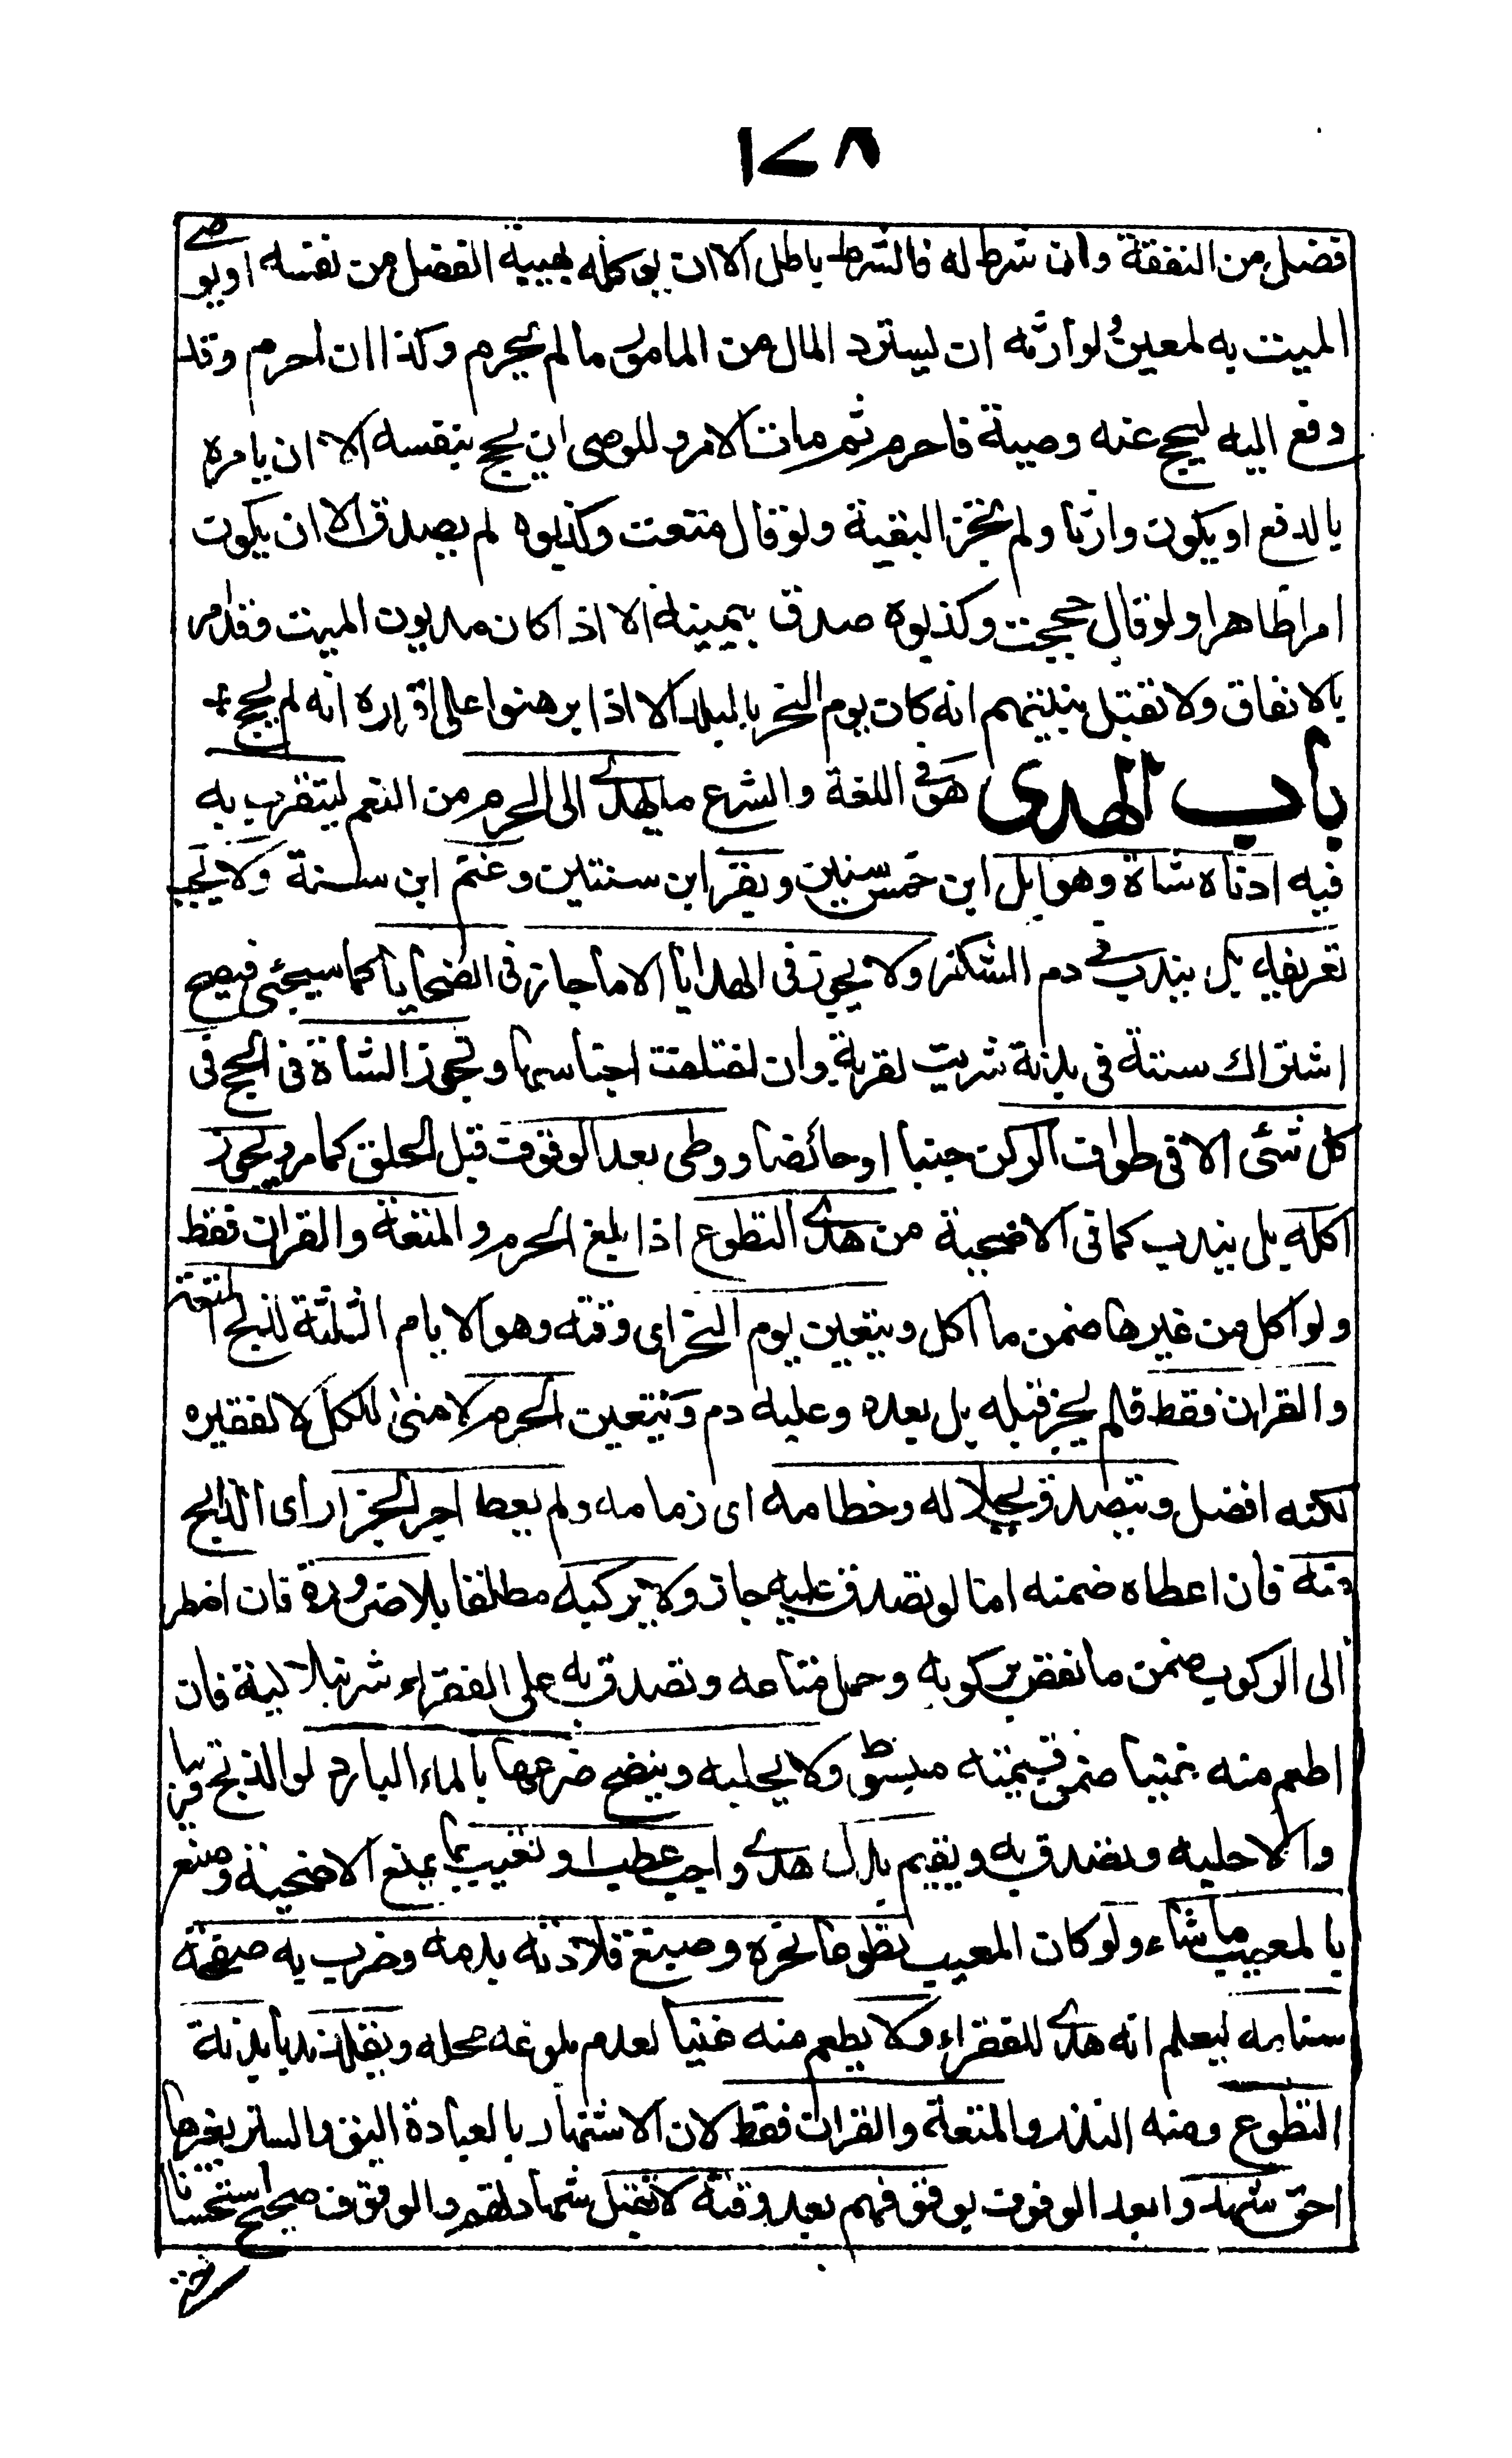 ١٧٨
فضل من النفقة وان شرط له فالشرط باطل الا ان يوكله بهبية الفضل من نفسه او يوصے
الميت به لمعين ولوارثه ان يسترد المال من المامور ما لم يحرم وكذا ان احرم وقد
دفع اليه ليحج عنه وصية فاحرم ثم مات الآمر وللوصى ان يحج بنفسه الا ان يامره
بالدفع او يكون وارثا ولم تجز البقية ولو قال منعت وكذبوه لم يصدق الا ان يكون
امرا ظاهرا ولو قال حججت وكذبوه صدق بيمينه الا اذا كان مديون الميت وقد امر
بالانفاق ولا تقبل بينتهم انه كان يوم النحر بالبلد الا اذا برهنوا على اقراره انه لم يحج
باب الهدى هو فى اللغة والشرع ما يهدے الى الحرم من النعم ليتقرب به
فيه ادناه شاة وهو ابل ابن خمس سنين وبقر ابن سنتين وغنم ابن سنة ولا يجب
تعريفه بل يندب فے دم الشكر ولا يجوز فى الهدايا الا ما جاز فى الضحايا كما سيجئى فيصح
اشتراك ستة فى بدنة شريت لقربة وان اختلفت اجناسها وتجوز الشاة فى الحج فى
كل شئى الا فى طواف الركن جنبا او حائضا ووطى بعد الوقوف قبل الحلق كما مر ويجوز
اكله بل يندب كما فى الاضحية من هدے التطوع اذا بلغ الحرم والمتعة والقران فقط
ولو اكل من غيرها ضمن ما اكل ويتعين يوم النحر اى وقته وهو الايام الثلثة لذبح المتعة
والقران فقط فلم يجز قبله بل بعده وعليه دم ويتعين الحرم لا منى للكل لا لفقيره
لكنه افضل ويتصدق بجلاله وخطامه اى زمامه ولم يعط اجر الجزار اى الذابح
منه فان اعطاه ضمنه اما لو تصدق عليه جاز ولا يركبه مطلقا بلا ضرورة فان اضطر
الى الركوب ضمن ما نقص بركوبه وحمل متاعه وتصدق به على الفقراء شرنبلالية فان
اطعم منه غنيا ضمن قيمته مبسوط ولا يحلبه وينضح ضرعها بالماء البارد لو الذبح قريبا
والا حلبه وتصدق به ويقيم بدل هدے واجب عطب او تعيب بما يمنع الاضحية وصنع
بالمعيب ما شاء ولو كان المعيب تطوعا نحره وصبغ قلادته بدمه وضرب به صفحة
سنامه ليعلم انه هدے للفقراء ولا يطعم منه غنيا لعدم بلوغه محله ويقلد ندبا بدنة
التطوع ومنه النذر والمتعة والقران فقط لان الاشتهار بالعبادة اليق والستر بغيرها
احق شهدوا بعد الوقوف بوقوفهم بعد وقته لا تقبل شهادتهم والوقوف صحيح استحسانا